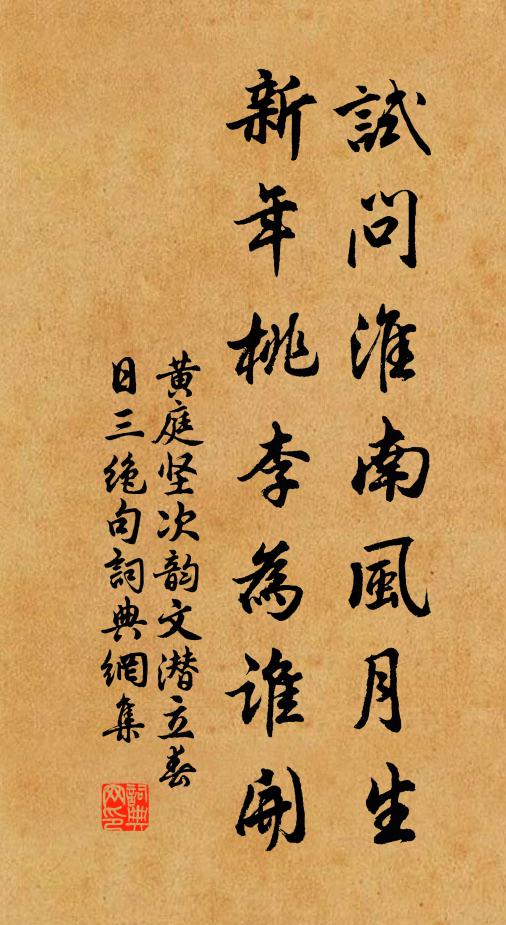 試問淮南風月生
新年桃李為誰開
黄庭坚次韵文潜立春
日三绝句詞典網集
詞典网印